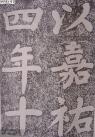 以嘉祐
四年十